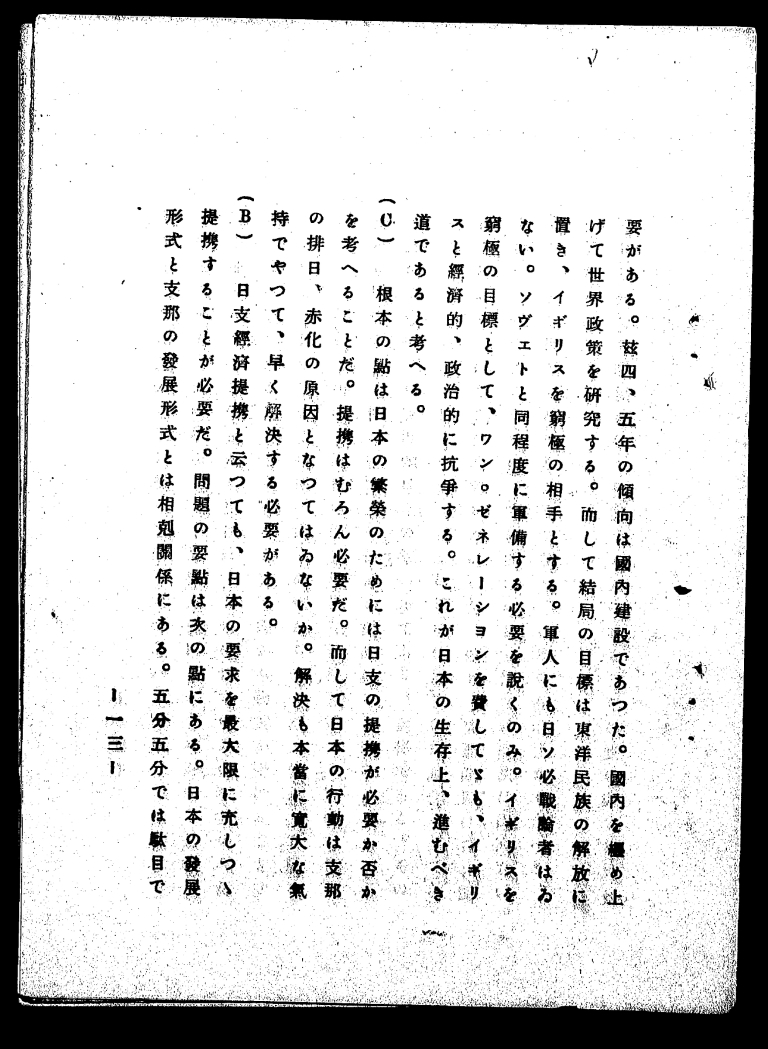 要がある。玆四、五年の傾向は國內建設であつた。國內を纒め上
げて世界政策を硏究する。而して結局の目標は東洋民族の解放に
置き、イギリスを窮極の相手とする。軍人にも日ソ必戰論者はゐ
ない。ソヴェトと同程度に軍備する必要を說くのみ。イギリスを
窮極の目標として、ワン。ゼネレーションを費してゞも、イギリ
スと經濟的、政治的に抗爭する。これが日本の生存上、進むべき
道であると考へる。
(C) 根本の點は日本の繁榮のためには日支の提携が必要か否か
を考へることだ。提携はむろん必要だ。而して日本の行動は支那
の排日、赤化の原因となつてはゐないか。解決も本當に寬大な氣
持でやつて、早く解決する必要がある。
(B) 日支經濟提携と云つても、日本の要求を最大限に充しつゝ
提携することが必要だ。問題の要點は次の點にある。日本の發展
形式と支那の發展形式とは相剋關係にある。五分五分では駄目で
ー一三ー